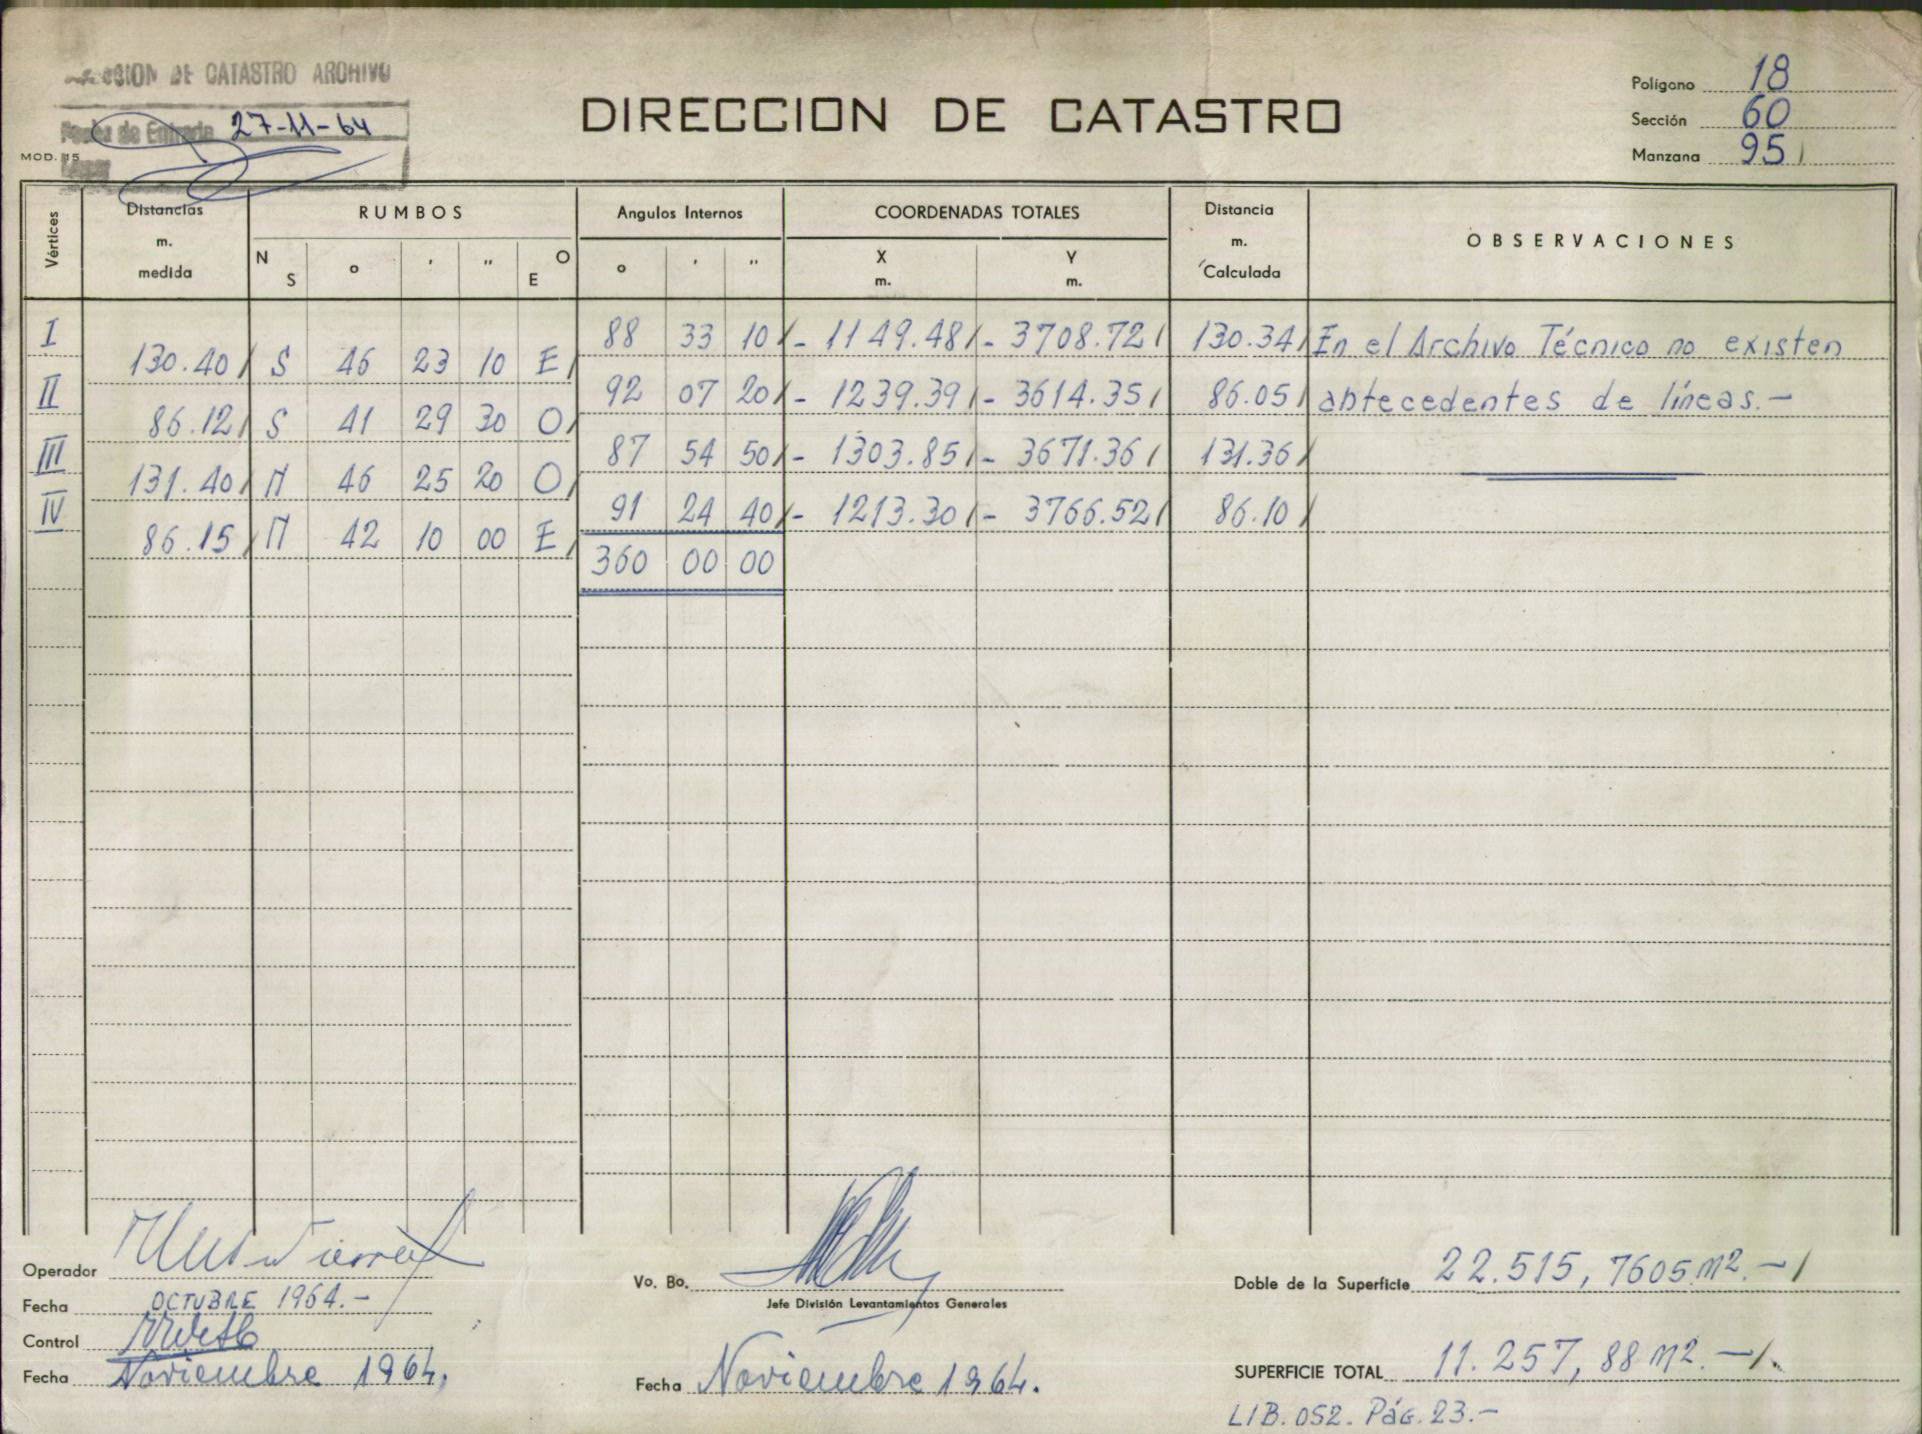 SION DE CATASTRO ARCHIVO
Fecha de Entrada 27-11-64
MOD. 15
DIRECCION DE CATASTRO
Polígono 18
Sección 60
Manzana 95
Vértices Distancias m. medida RUMBOS Angulos Internos COORDENADAS TOTALES Distancia m. Calculada OBSERVACIONES
N S o ' " O E o ' " X m. Y m.
I 88 33 10 - 1149.48 - 3708.72 130.34 En el Archivo Técnico no existen
130.40 S 46 23 10 E
II 92 07 20 - 1239.39 - 3614.35 86.05 antecedentes de líneas.-
86.12 S 41 29 30 O
III 87 54 50 - 1303.85 - 3671.36 131.36
131.40 N 46 25 20 O
IV 91 24 40 - 1213.30 - 3766.52 86.10
86.15 N 42 10 00 E
360 00 00
Operador
Fecha OCTUBRE 1964.-
Control
Fecha Noviembre 1964.
Vo. Bo.
Jefe División Levantamientos Generales
Fecha Noviembre 1964.
Doble de la Superficie 22.515, 7605 m2.-
SUPERFICIE TOTAL 11.257, 88 m2.-
LIB. 052. Pág. 23.-